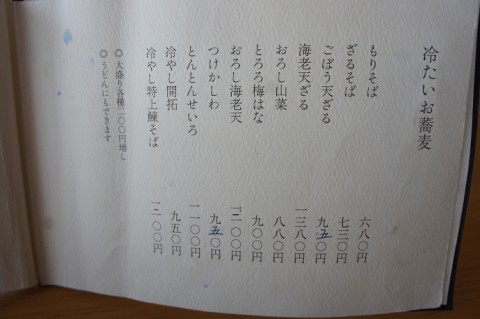 冷たいお蕎麦
もりそば 六八〇円
ざるそば 七三〇円
ごぼう天ざる 九五〇円
海老天ざる 一三八〇円
おろし山菜 八八〇円
とろろ梅はな 九〇〇円
おろし海老天 一二〇〇円
つけかしわ 九五〇円
とんとんせいろ 一一〇〇円
冷やし開拓 九五〇円
冷やし特上鰊そば 一二〇〇円
◎大盛り各種二〇〇円増し
◎うどんにもできます